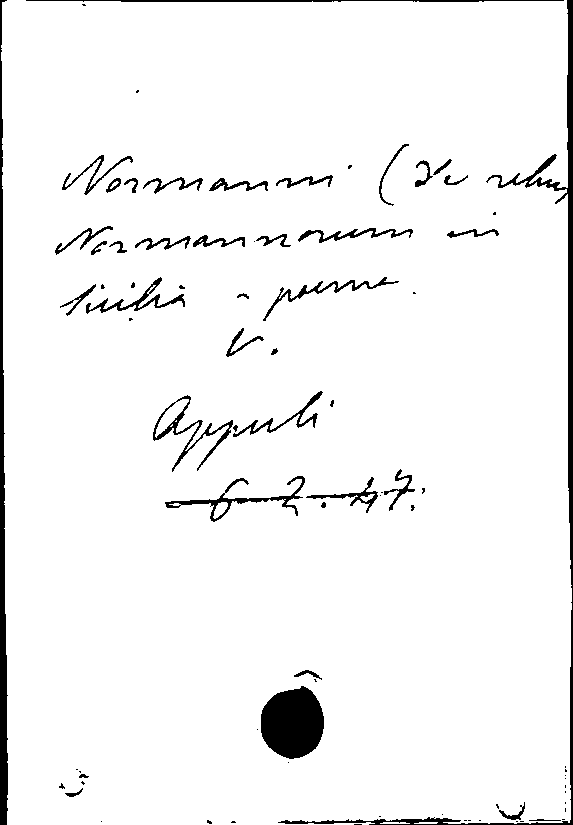 Normanni (De rebus
Normannorum in
Sicilia - poema
V.
Appuli
6 2. 47.